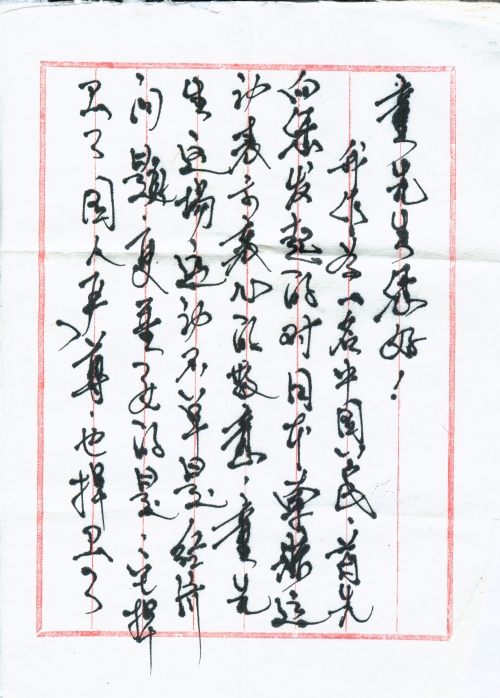 童先生您好！
我作为一名中国公民、首先
向您发起的对日本 索赔运
动表示衷心的敬意、童先
生这场运动不单是经济
问题、更重要的是、它捍
卫了国人尊严、也捍卫了